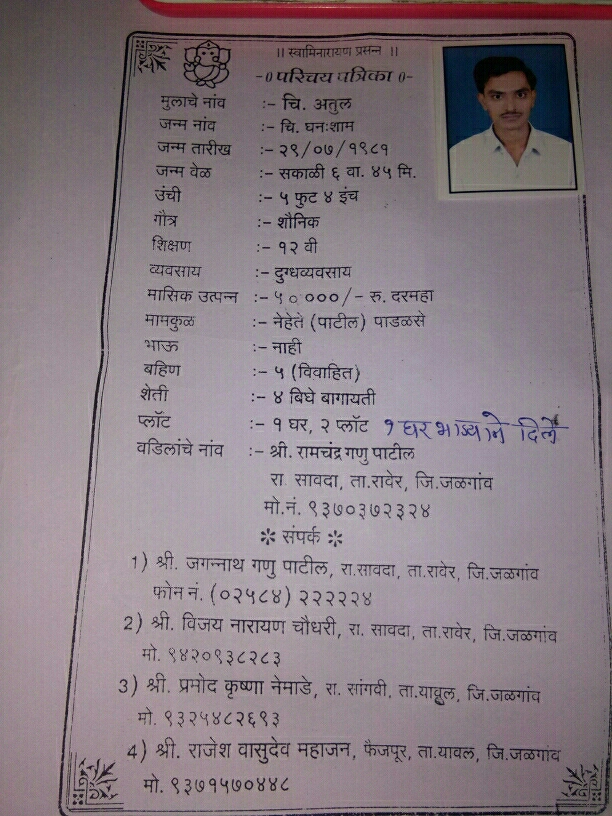 ॥ स्वामिनारायण प्रसन्न ॥
-० परिचय पत्रिका ०-
मुलाचे नांव :- चि. अतुल
जन्म नांव :- चि. घनःशाम
जन्म तारीख :- २९/०७/१९८१
जन्म वेळ :- सकाळी ६ वा. ४५ मि.
उंची :- ५ फुट ४ इंच
गौत्र :- शौनिक
शिक्षण :- १२ वी
व्यवसाय :- दुग्धव्यवसाय
मासिक उत्पन्न :- ५००००/- रु. दरमहा
मामकुळ :- नेहेते (पाटील) पाडळसे
भाऊ :- नाही
बहिण :- ५ (विवाहित)
शेती :- ४ बिघे बागायती
प्लॉट :- १ घर, २ प्लॉट १ घर भाड्याने दिले
वडिलांचे नांव :- श्री. रामचंद्र गणु पाटील
रा. सावदा, ता.रावेर, जि.जळगांव
मो.नं. ९३७०३७२३२४
✻ संपर्क ✻
1) श्री. जगन्नाथ गणु पाटील, रा.सावदा, ता.रावेर, जि.जळगांव
फोन नं. (०२५८४) २२२२२४
2) श्री. विजय नारायण चौधरी, रा. सावदा, ता.रावेर, जि.जळगांव
मो. ९४२०९३८२८३
3) श्री. प्रमोद कृष्णा नेमाडे, रा. सांगवी, ता.यावल, जि.जळगांव
मो. ९३२५४८२६९३
4) श्री. राजेश वासुदेव महाजन, फैजपूर, ता.यावल, जि.जळगांव
मो. ९३७१५७०४४८